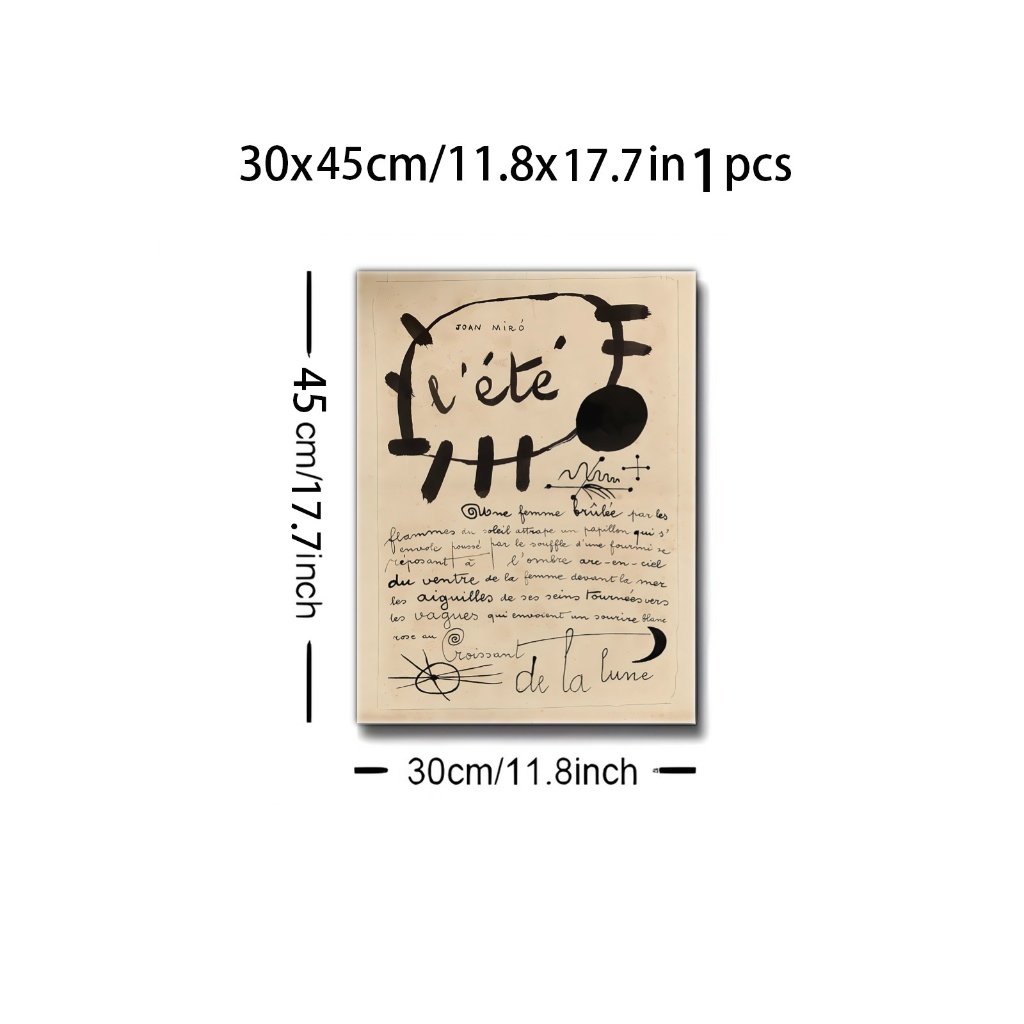 30x45cm/11.8x17.7in 1 pcs
45 cm/17.7inch
JOAN MIRÓ
l'été
Une femme brûlée par les
flammes du soleil attrape un papillon qui s'
envole poussé par le souffle d'une fourmi se
réposant à l'ombre arc-en-ciel
du ventre de la femme devant la mer
les aiguilles de ses seins tournées vers
les vagues qui envoient un sourire blanc
rose au Croissant
de la lune
30cm/11.8inch